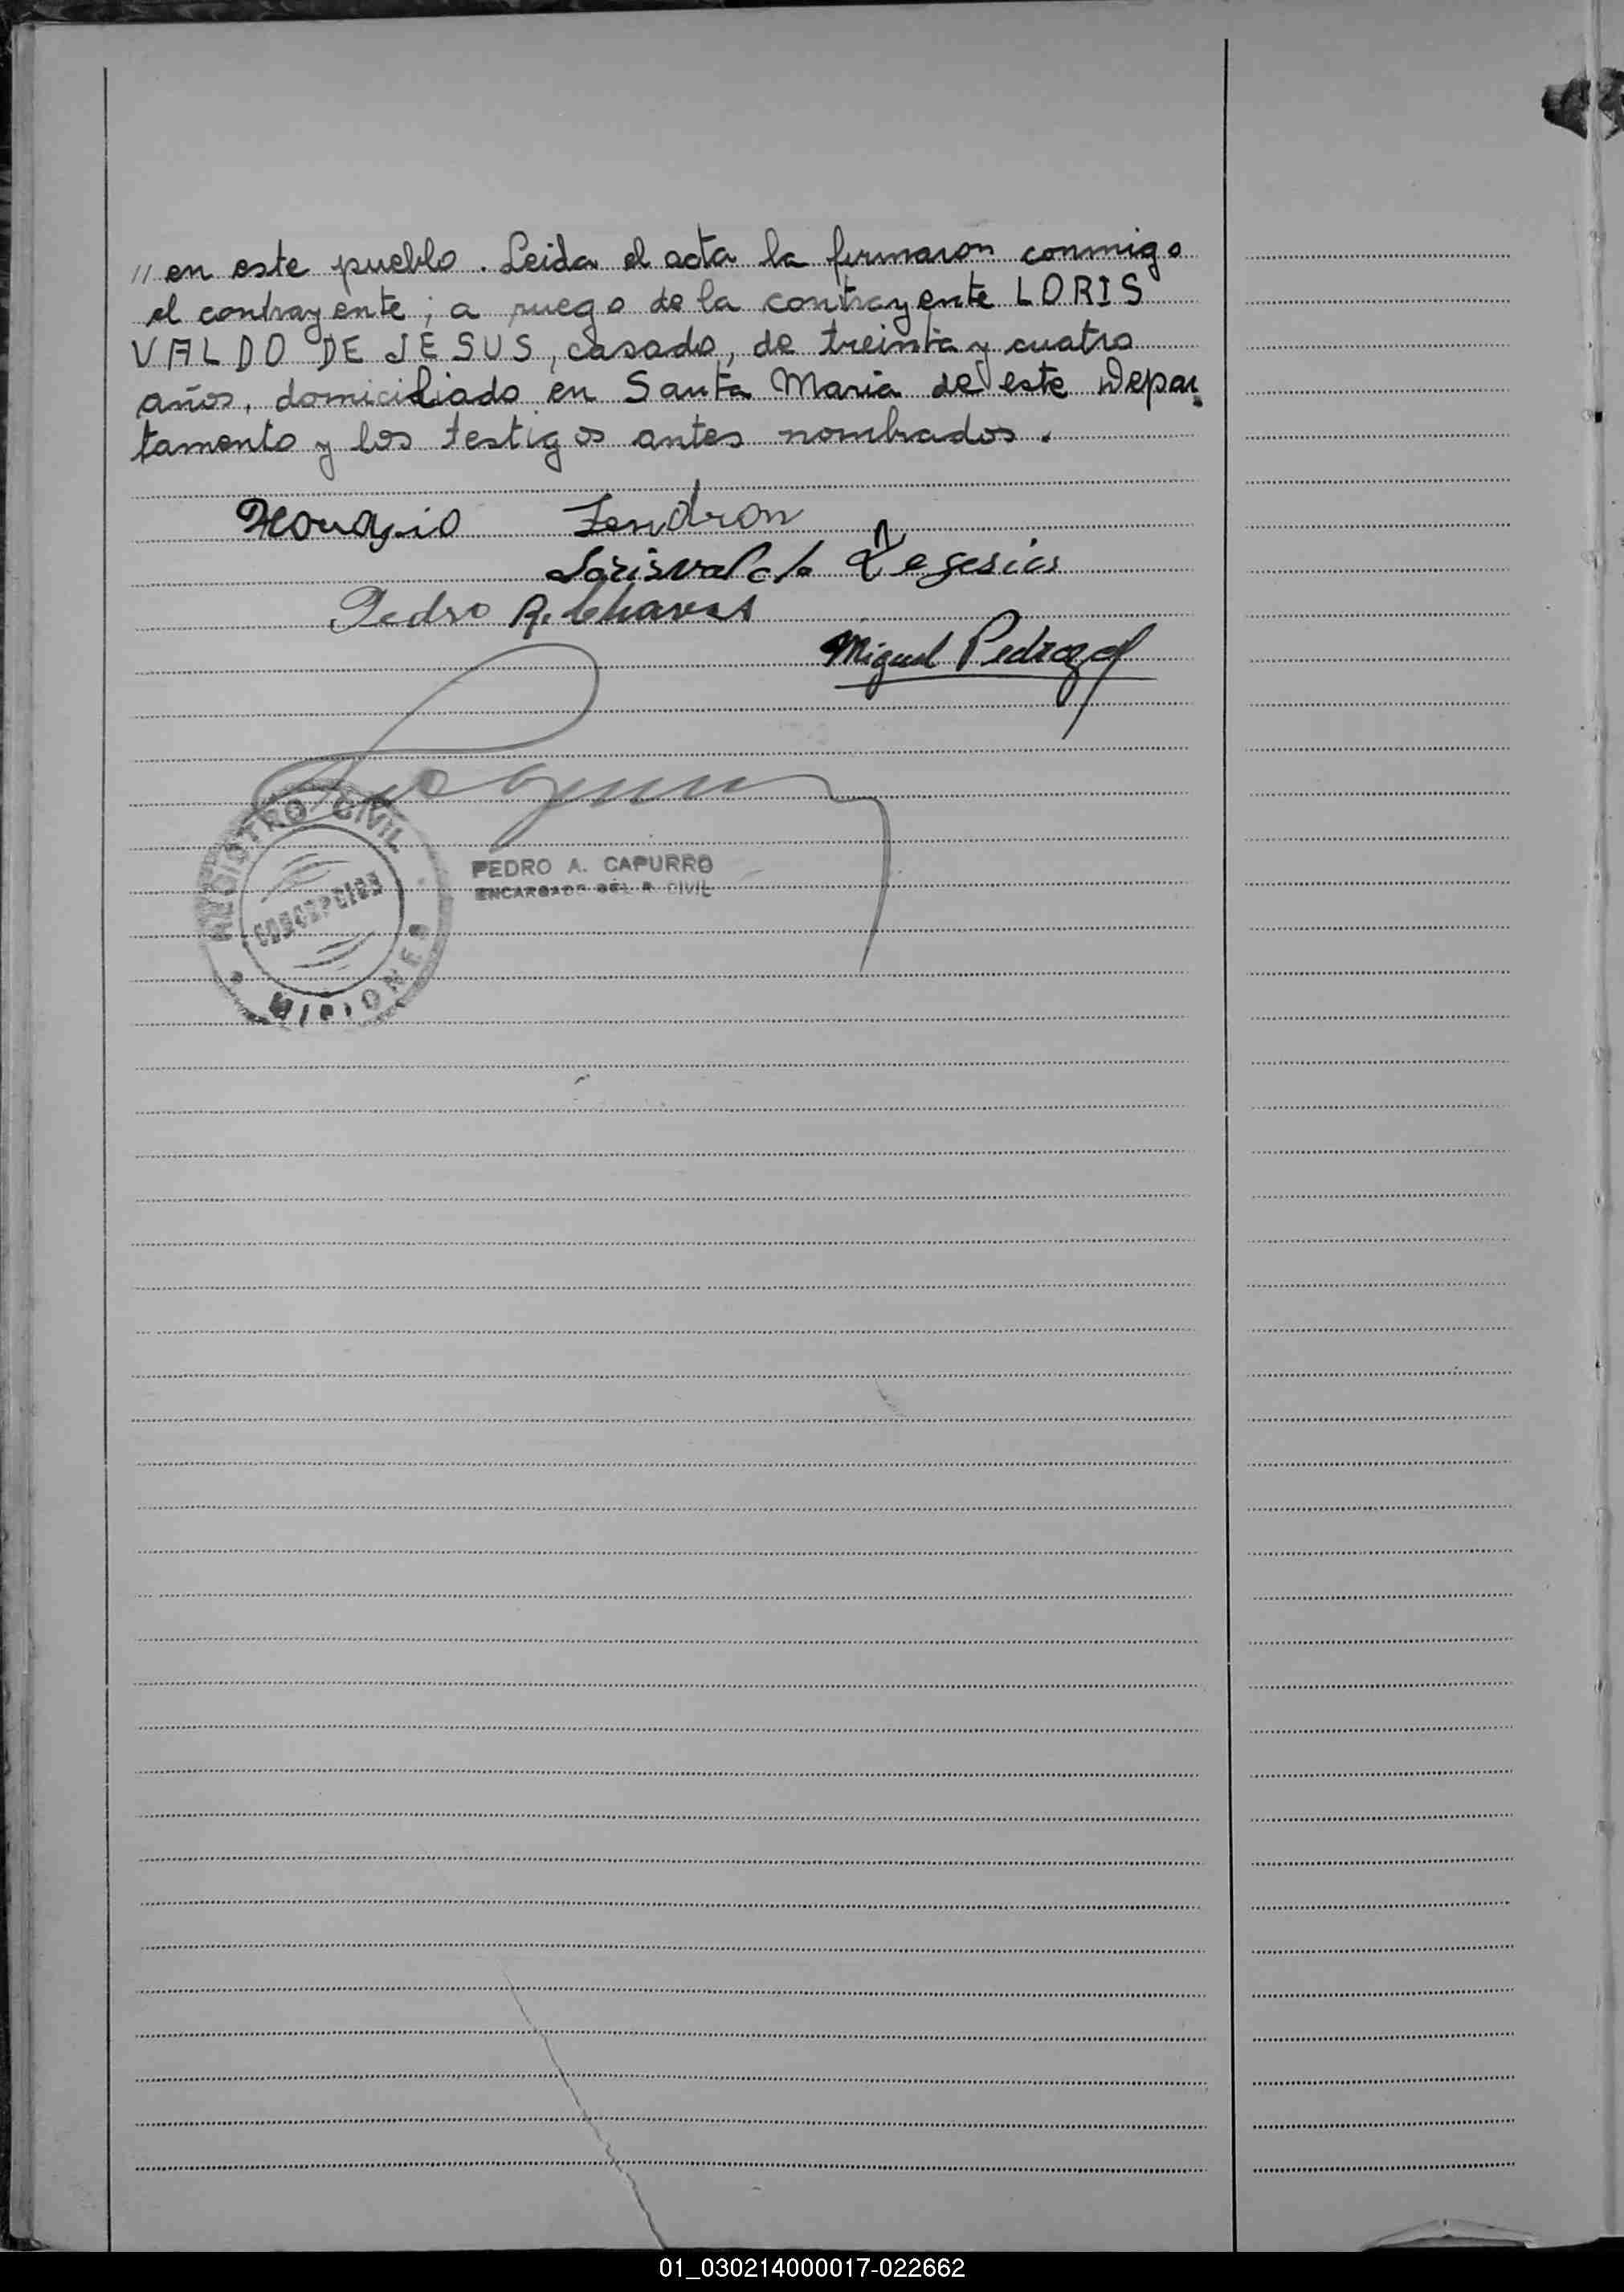 // en este pueblo. Leida el acta la firmaron conmigo
el contrayente; a ruego de la contrayente LORIS
VALDO DE JESUS, casado, de treinta y cuatro
años, domiciliado en Santa Maria de este Depar
tamento y los testigos antes nombrados.
Horasio Zendron
Lorisvaldo De Jesus
Pedro R. Chaves
Miguel Pedrozo
REGISTRO CIVIL
CONCEPCION
MISIONES
PEDRO A. CAPURRO
ENCARGADO DEL R. CIVIL
01_030214000017-022662